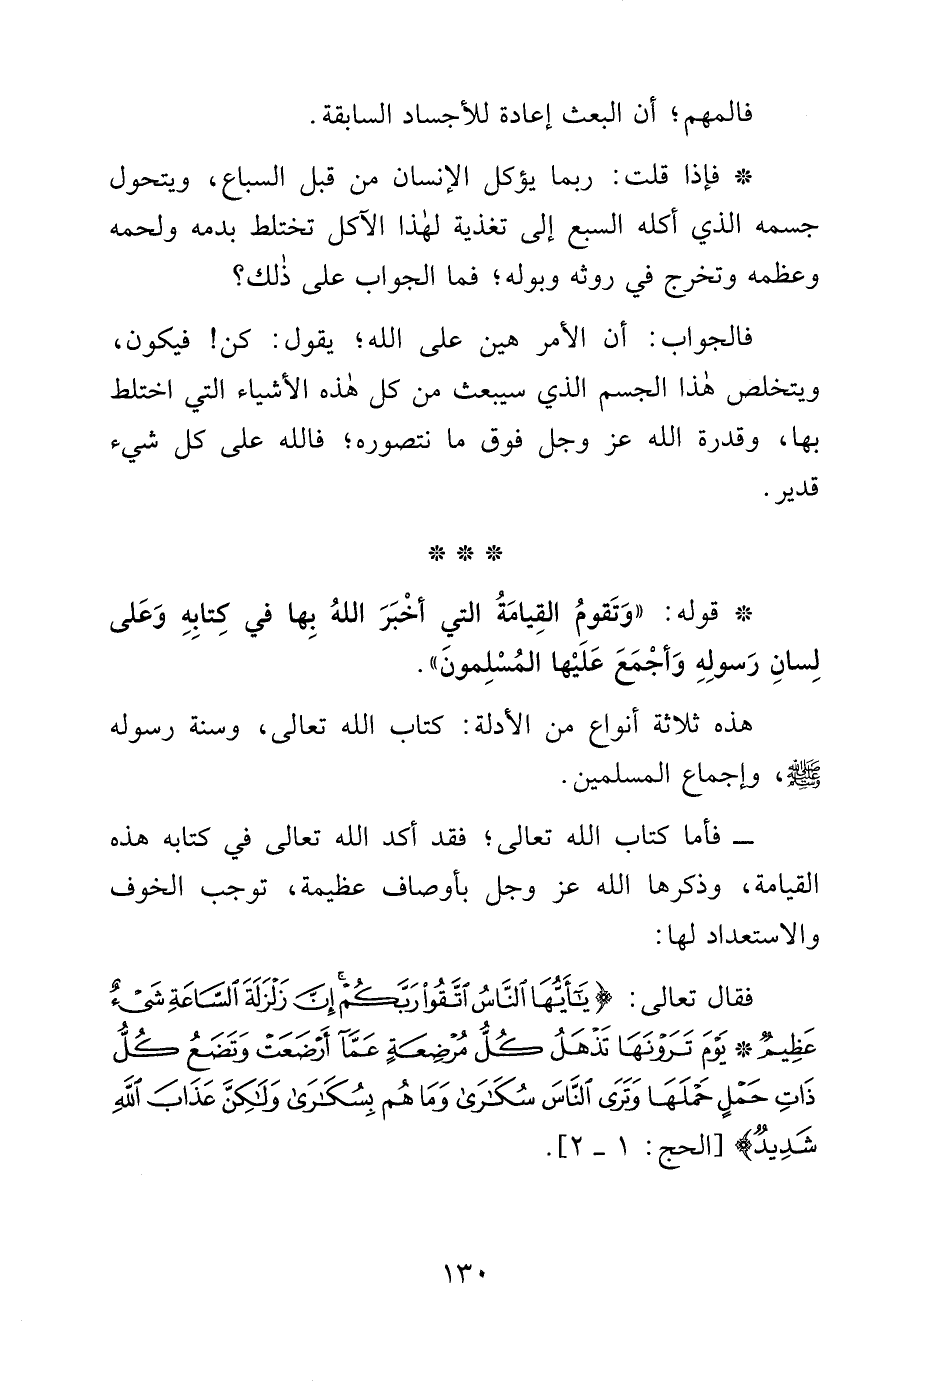 فالمهم؛ أن البعث إعادة للأجساد السابقة.
* فإذا قلت: ربما يؤكل الإنسان من قبل السباع، ويتحول
جسمه الذي أكله السبع إلى تغذية لهٰذا الآكل تختلط بدمه ولحمه
وعظمه وتخرج في روثه وبوله؛ فما الجواب على ذٰلك؟
فالجواب: أن الأمر هين على الله؛ يقول: كن! فيكون،
ويتخلص هٰذا الجسم الذي سيبعث من كل هٰذه الأشياء التي اختلط
بها، وقدرة الله عز وجل فوق ما نتصوره؛ فالله على كل شيء
قدير.
* * *
* قوله: «وَتَقومُ القِيامَةُ التي أخْبَرَ اللهُ بِها في كِتابِهِ وَعَلى
لِسانِ رَسولِهِ وَأجْمَعَ عَلَيْها المُسْلِمونَ».
هذه ثلاثة أنواع من الأدلة: كتاب الله تعالى، وسنة رسوله
ﷺ، وإجماع المسلمين.
ـ فأما كتاب الله تعالى؛ فقد أكد الله تعالى في كتابه هذه
القيامة، وذكرها الله عز وجل بأوصاف عظيمة، توجب الخوف
والاستعداد لها:
فقال تعالى: ﴿يَٰٓأَيُّهَا ٱلنَّاسُ ٱتَّقُواْ رَبَّكُمْۚ إِنَّ زَلْزَلَةَ ٱلسَّاعَةِ شَىْءٌ
عَظِيمٌ * يَوْمَ تَرَوْنَهَا تَذْهَلُ كُلُّ مُرْضِعَةٍ عَمَّآ أَرْضَعَتْ وَتَضَعُ كُلُّ
ذَاتِ حَمْلٍ حَمْلَهَا وَتَرَى ٱلنَّاسَ سُكَٰرَىٰ وَمَا هُم بِسُكَٰرَىٰ وَلَٰكِنَّ عَذَابَ ٱللَّهِ
شَدِيدٌ﴾ [الحج: ١ ـ ٢].
١٣٠